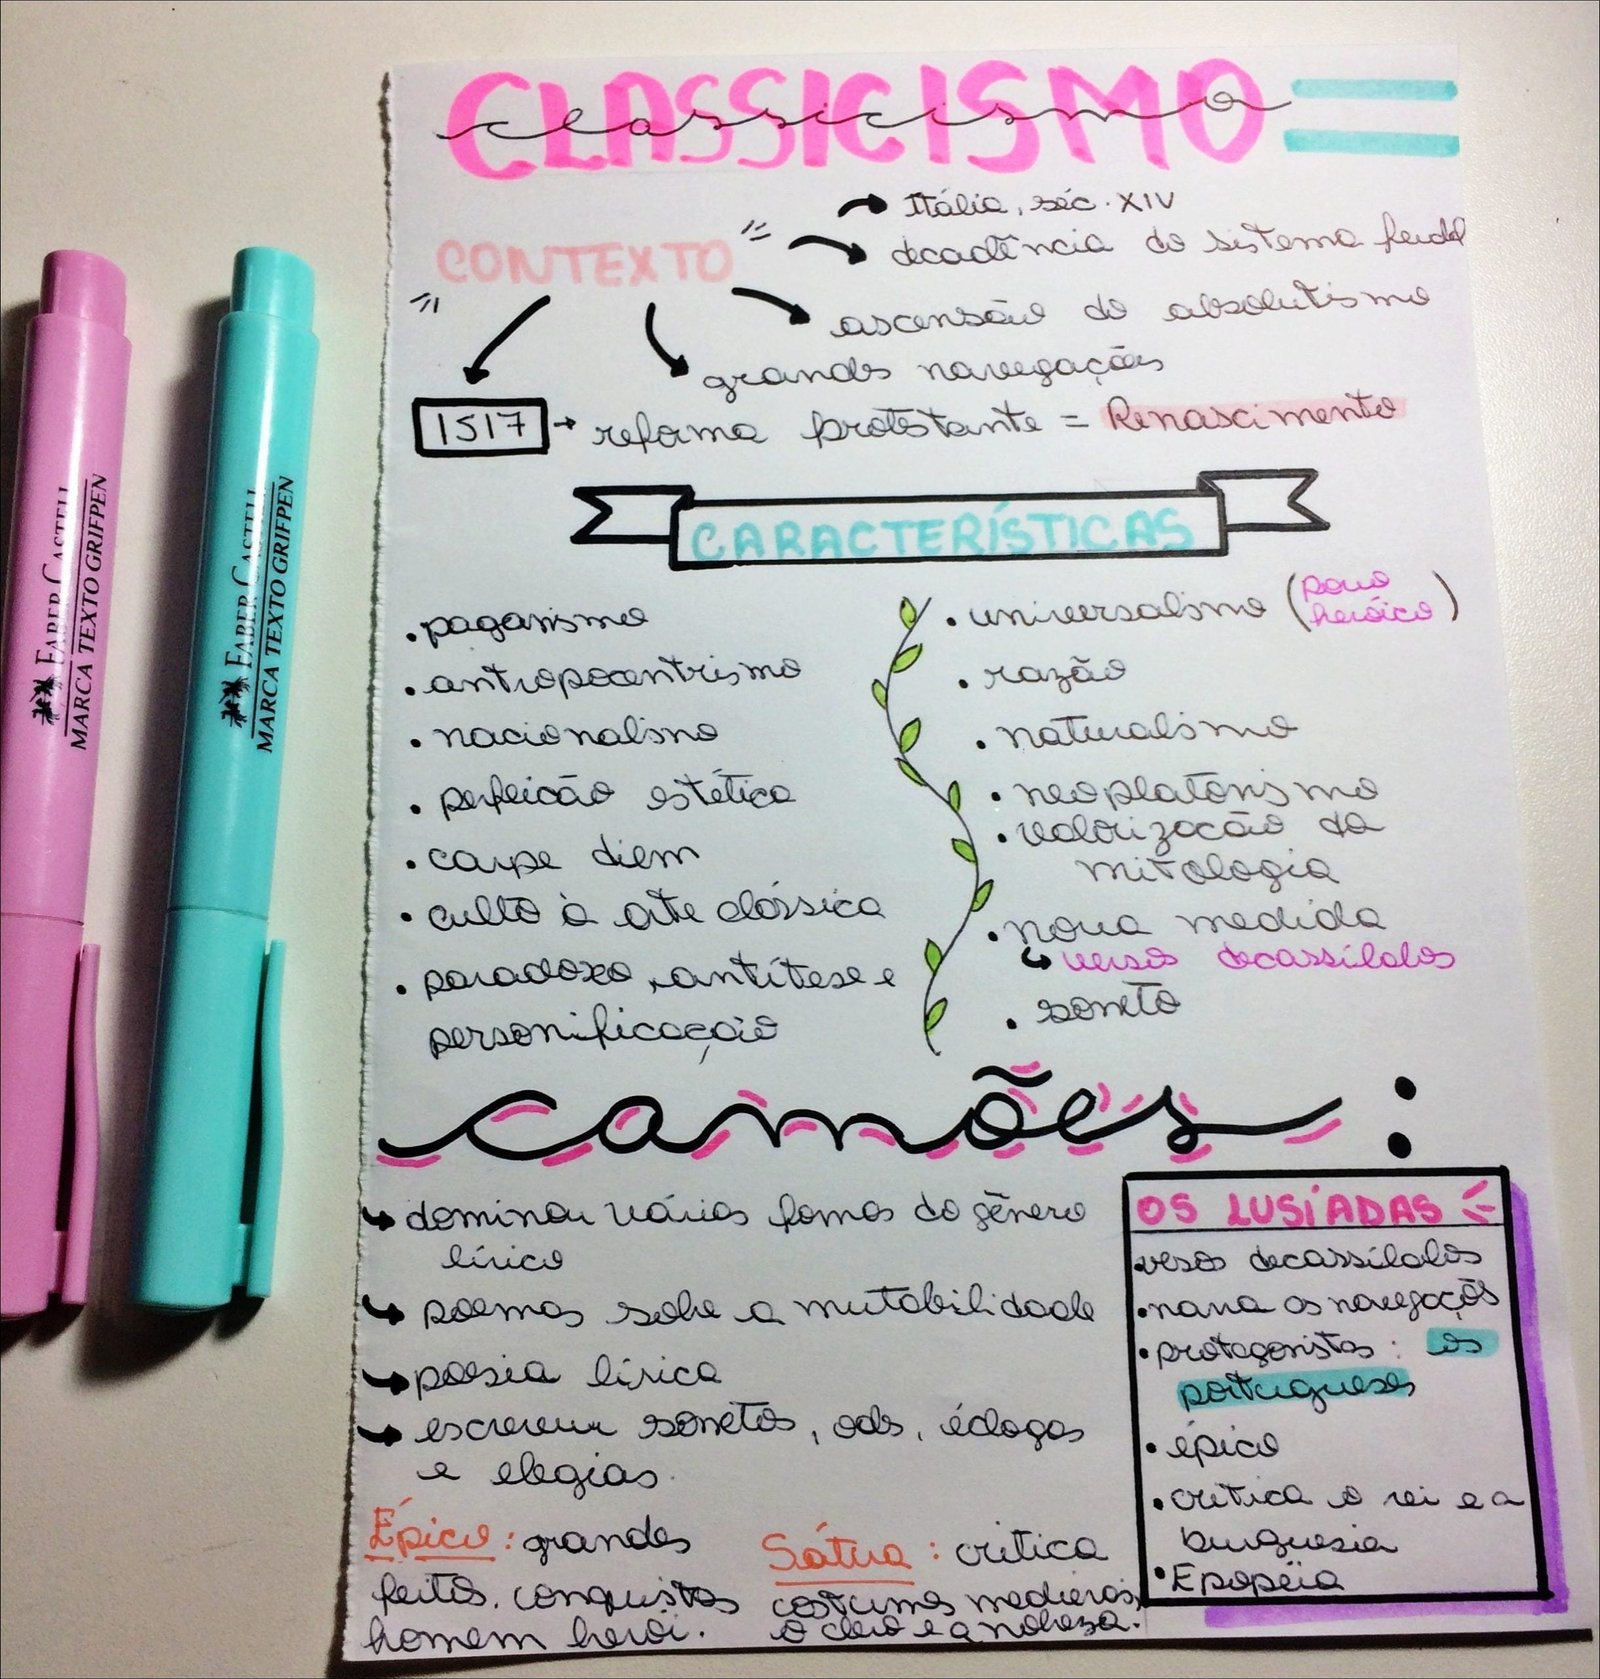 CLASSICISMO
classicismo
CONTEXTO
Itália, séc. XIV
decadência do sistema feudal
ascensão do absolutismo
grandes navegações
1517 → reforma protestante = Renascimento
CARACTERÍSTICAS
• paganismo
• antropocentrismo
• nacionalismo
• perfeição estética
• carpe diem
• culto à arte clássica
• paradoxo, antítese e
personificação
• universalismo (povo
heróico)
• razão
• naturalismo
• neoplatonismo
• valorização da
mitologia
• nova medida
versos decassílabos
• soneto
camões:
dominou várias formas do gênero
lírico
poemas sobre a mutabilidade
poesia lírica
escreveu sonetos, odes, éclogas
e elegias.
Épico: grandes
feitos, conquistas
homem herói.
Sátira: critica
costumes medievais,
o clero e a nobreza.
OS LUSÍADAS
• versos decassílabos
• narra as navegações
• protagonistas: os
portugueses
• épico
• critica o rei e a
burguesia
• Epopéia
FABER CASTELL
MARCA TEXTO GRIFPEN
FABER CASTELL
MARCA TEXTO GRIFPEN